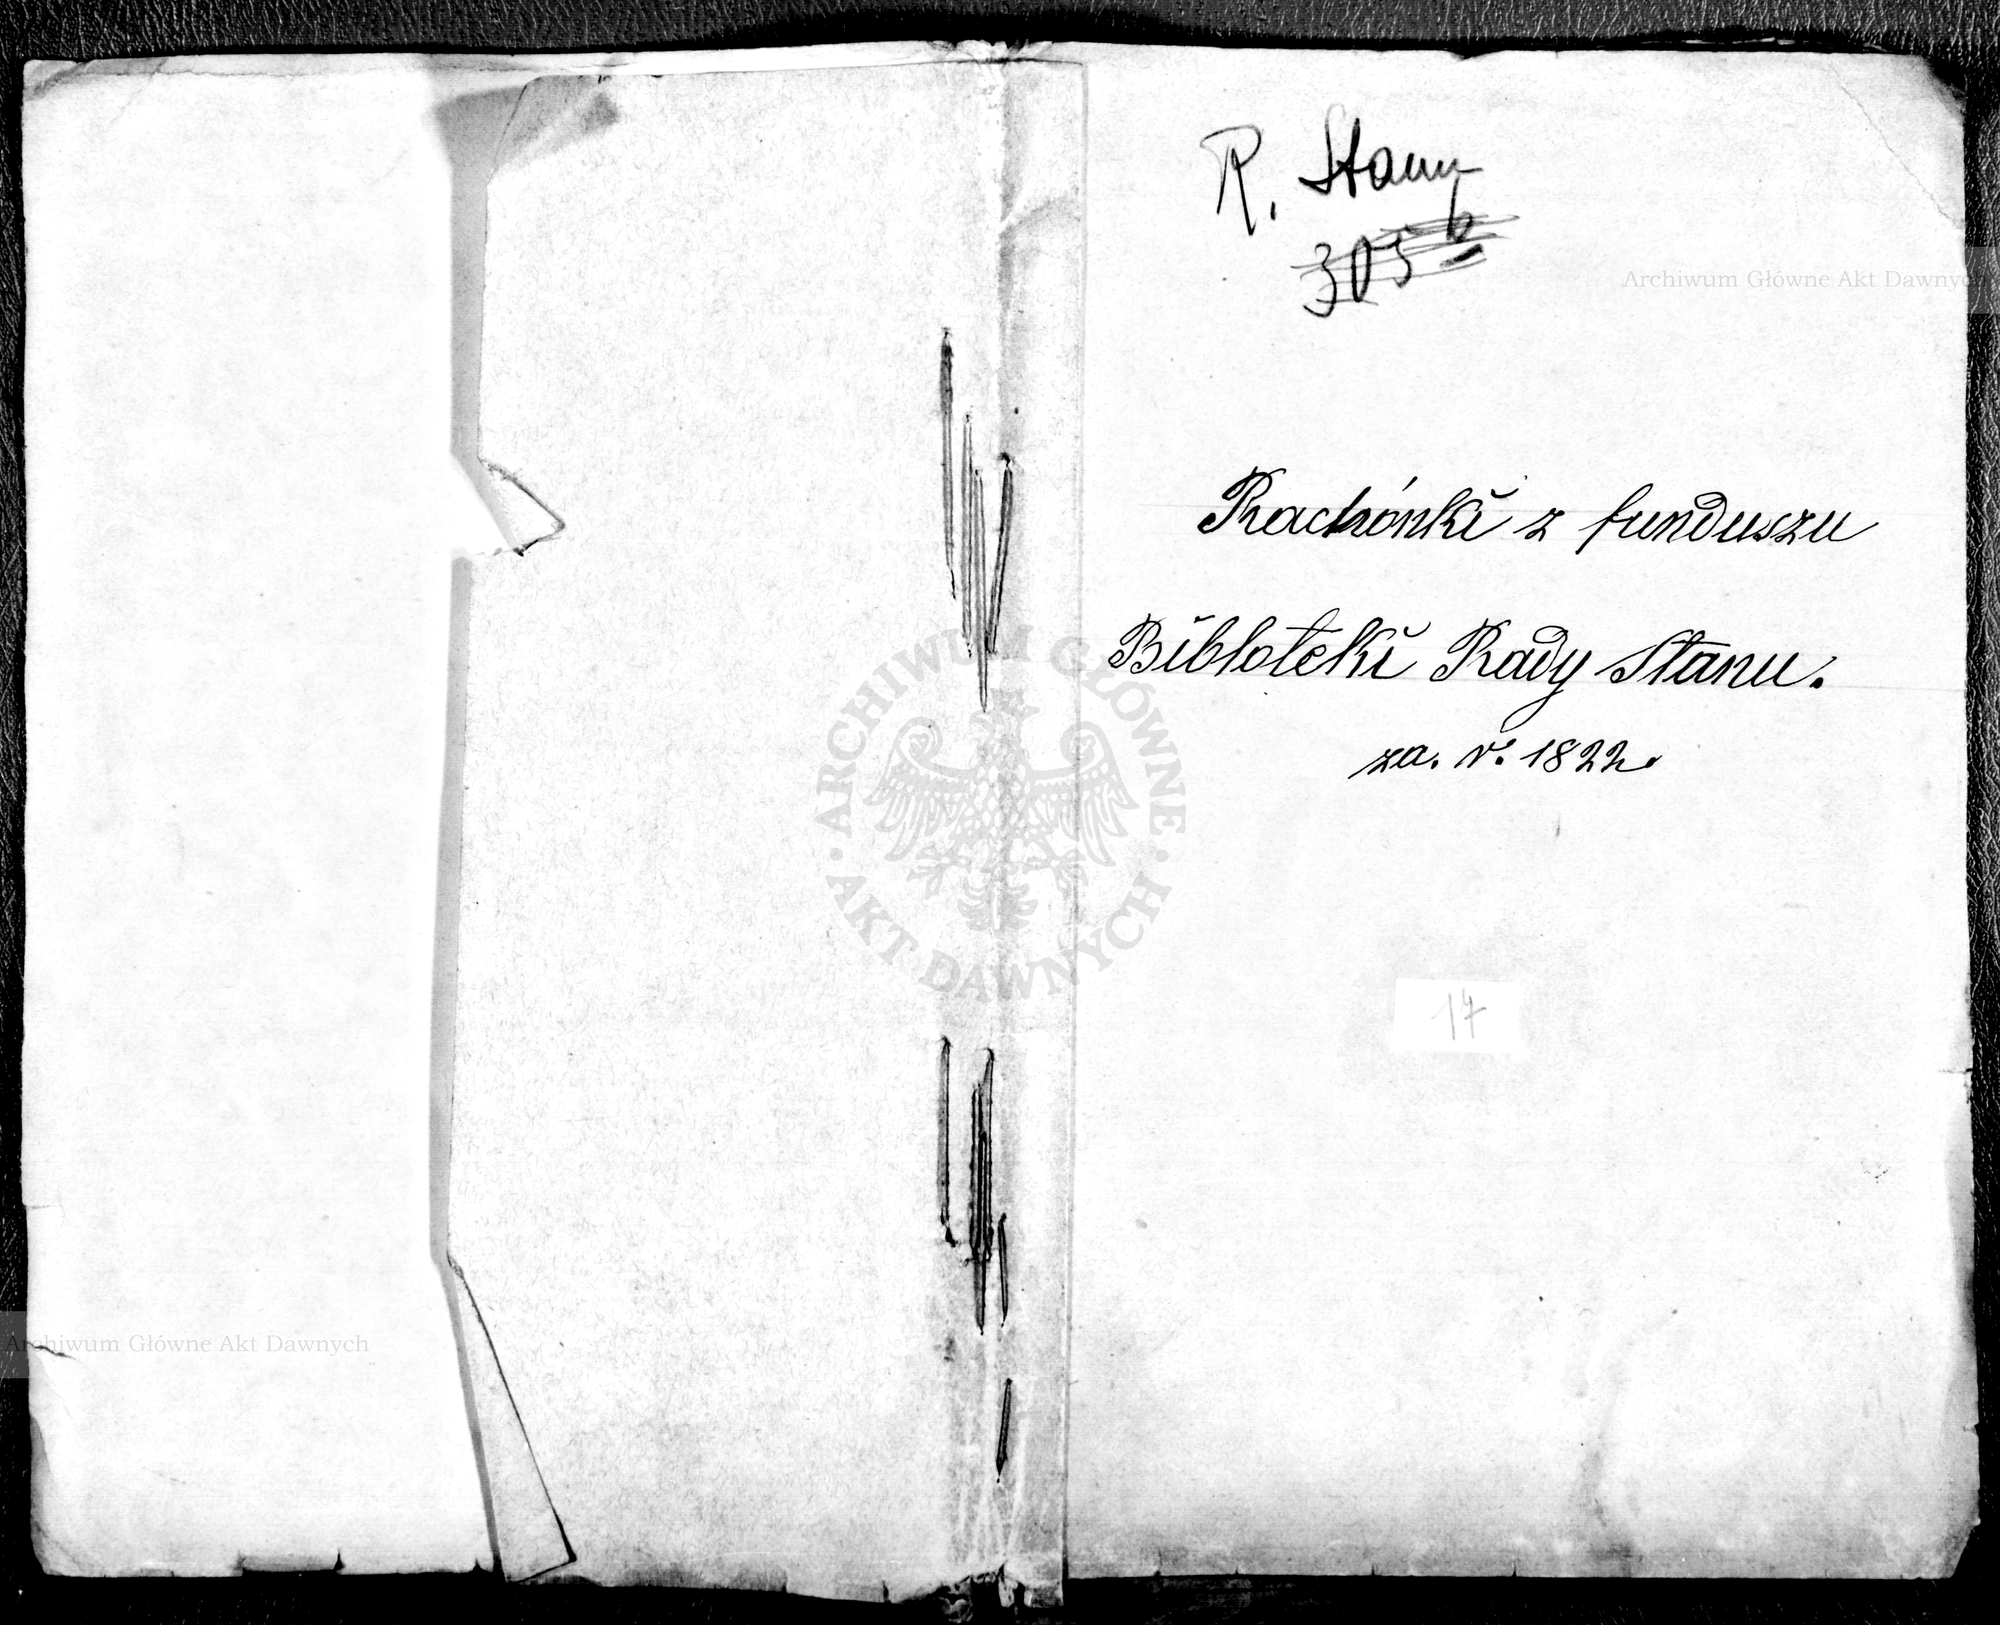 R. Stanu
305b
Rachónki z funduszu
Bibloteki Rady Stanu.
za. r. 1822.
17
Archiwum Główne Akt Dawnych
ARCHIWUM GŁÓWNE
· AKT DAWNYCH ·
Archiwum Główne Akt Dawnych